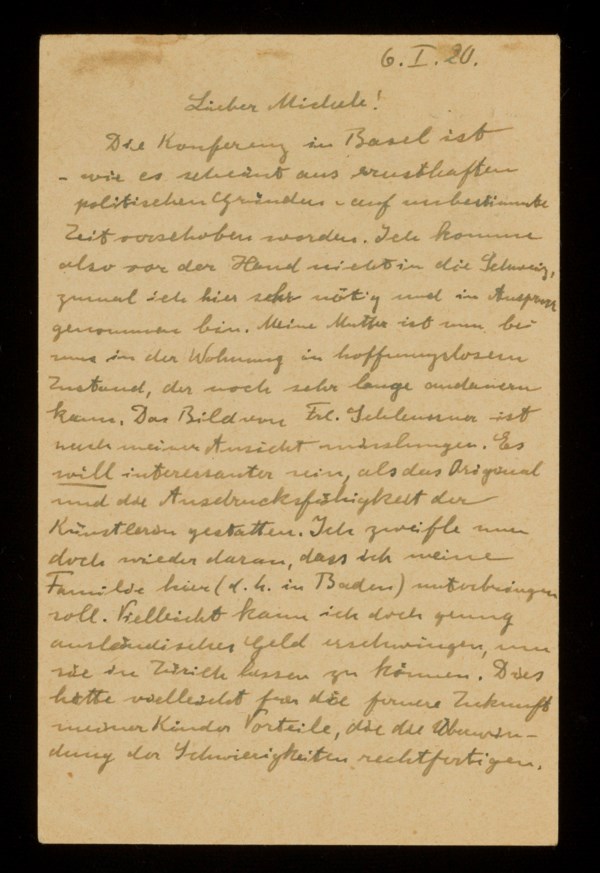 6. I. 20.
Lieber Michele!
Die Konferenz in Basel ist
- wie es scheint aus ernsthaften
politischen Gründen - auf unbestimmte
Zeit verschoben worden. Ich komme
also vor der Hand nicht in die Schweiz,
zumal ich hier sehr nötig und in Anspruch
genommen bin. Meine Mutter ist nun bei
uns in der Wohnung in hoffnungslosem
Zustand, der noch sehr lange andauern
kann. Das Bild von Frl. Schleusner ist
nach meiner Ansicht misslungen. Es
will interessanter sein, als das Original
und die Ausdrucksfähigkeit der
Künstlerin gestatten. Ich zweifle nun
doch wieder daran, dass ich meine
Familie hier (d. h. in Baden) unterbringen
soll. Vielleicht kann ich doch genug
ausländisches Geld erschwingen, um
sie in Zürich lassen zu können. Dies
hätte vielleicht für die fernere Zukunft
meiner Kinder Vorteile, die die Überwin-
dung der Schwierigkeiten rechtfertigen.